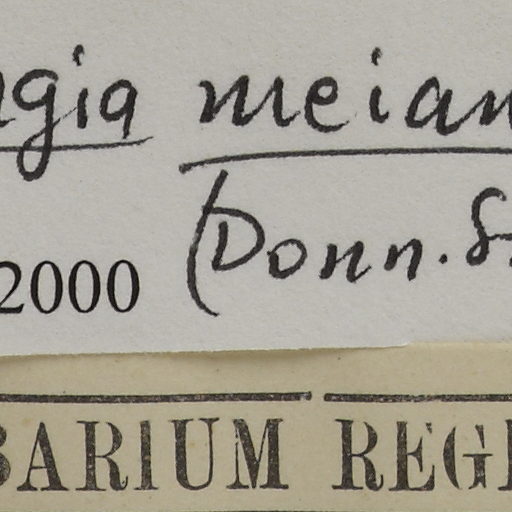 ngia meian
(Donn. S.
2000
BARIUM REGI